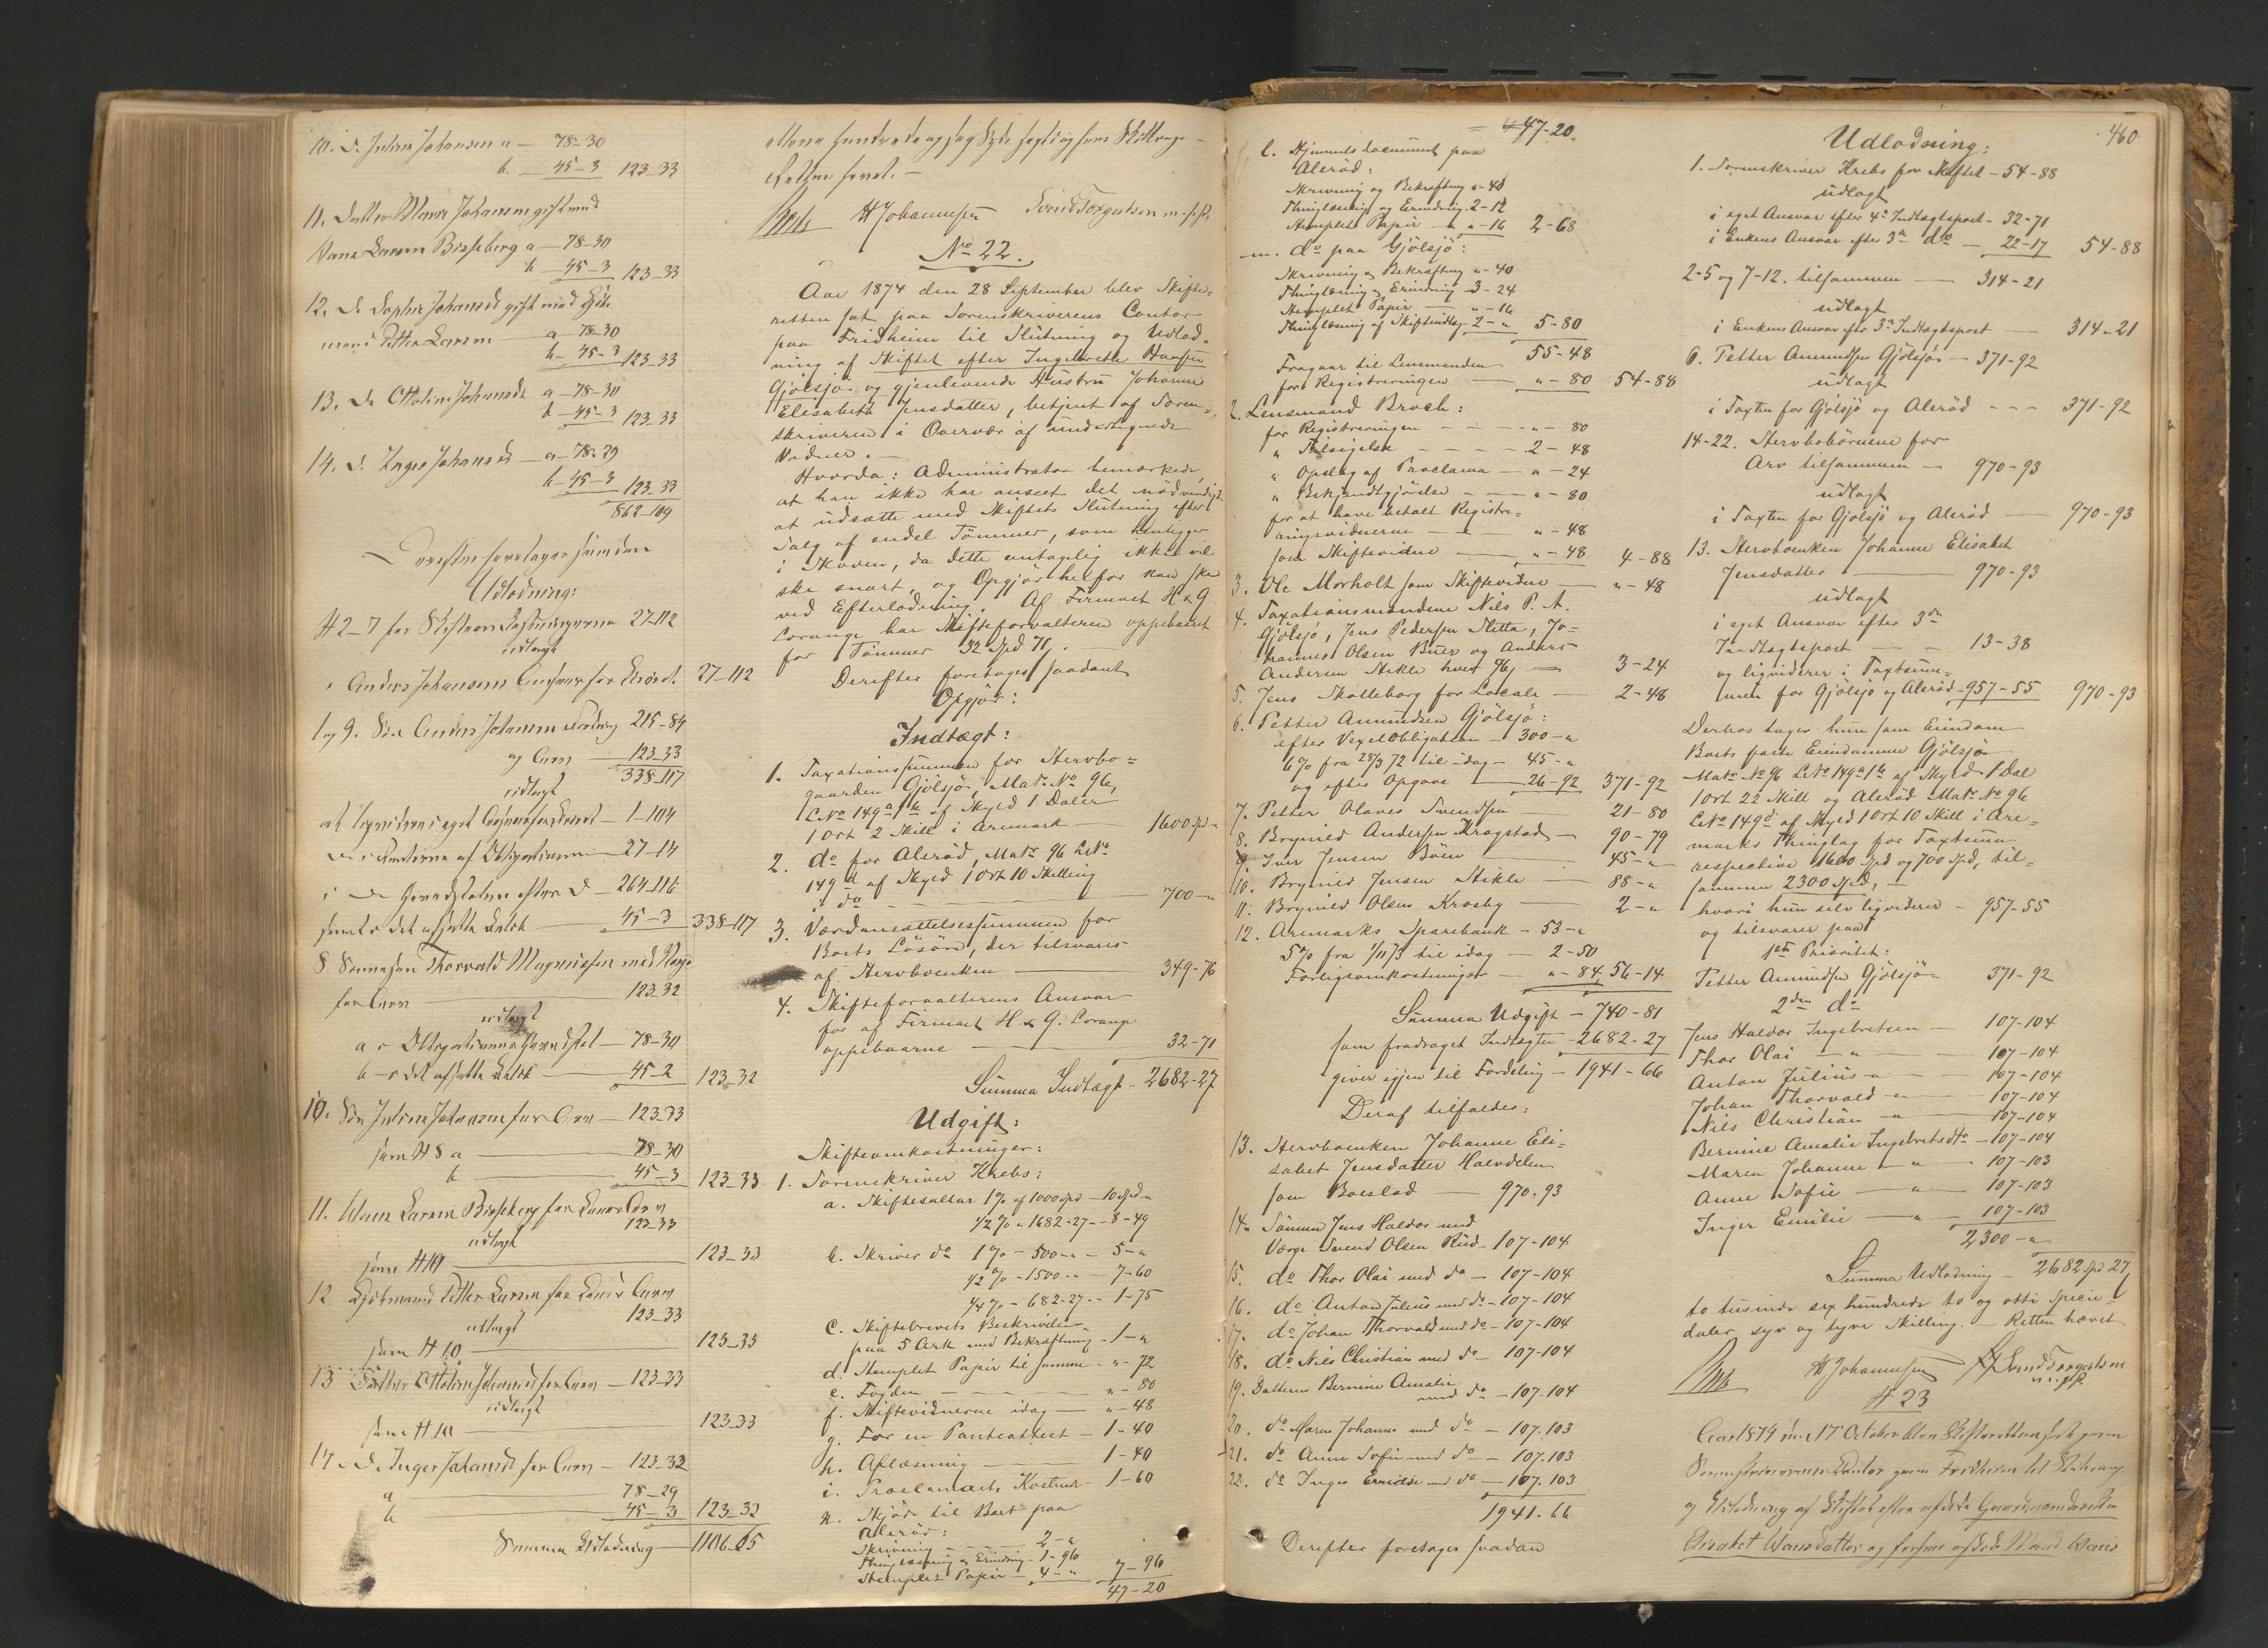 10. d. Julius Johansen a — 78-30
b. — 45-3 123-33
11. Datter Maren Johansen gift med
Hans Larsen Bisseberg a — 78-30
b — 45-3 123-33
12. d. Sophie Johansd gift med
Petter Larsen — a — 78-30
b — 45-3 123-33
13. d. Ottoline Johansd a — 78-30
b — 45-3 123-33
14. d. Inger Johansd — a — 78-29
b — 45-3 123-33
862-109
Derefter foretoges saadan
Udlodning:
# 2-7 for Skifteomkostningerne 27-112
udlagt
i Anders Johansens Ansvar for 27-112
1 og 9. Søn Anders Johansen Fordring 215-84
og Arv — 123-33
338-117
udlagt
at liqvidere i eget Ansvar for — 1-104
i Renterne af Obligationen — 27-14
i do Hovedstolen efter d — 264-116
samt i det afsatte Beløb — 45-3 338-117
8 Sønnesøn Thorvald Magnussen med Værge
for Arv — 123-32
udlagt
a i Obligationens Hovedstol — 78-30
b — i det afsatte Beløb — 45-2 123-32
10. Søn Julius Johansen for Arv — 123-33
som # 8 a — 78-30
b — 45-3 123-33
11. Hans Larsen Bisseberg for Kones Arv
123-33
udlagt
som # 10 — 123-33
12. Petter Larsen for Kones Arv
123-33
udlagt
som # 10 — 123-33
13 Datter Ottoline Johansd for Arv — 123-33
udlagt
som # 10 — 123-33
14. d. Inger Johansd for Arv — 123-32
a — 78-29
b — 45-3 123-32
Summa Udlodning — 1106-65
Retten hævet. —
Krebs H Johannesen Svend Torgalsen m.f.P.
No 22.
Aar 1874 den 28 September blev Skifte-
retten sat paa Sorenskriverens Contor
paa Fridheim til Slutning og Udlod-
ning af Skiftet efter Ingebreth Hansen
Gjölsjö og gjenlevende Hustru Johanne
Elisabeth Jensdatter, betjent af Soren-
skriveren i Overvær af undertegnede
Vidner. —
Hvorda: Administrator bemærkede,
at han ikke har anseet det nödvendigt
at udsætte med Skiftets Slutning efter
Salg af endel Tömmer, som henligger
i Skoven, da dette antagelig ikke vil
ske snart, og Opgjör herfor kan ske
ved Efterlodning. Af Firmaet H & G
Lorange har Skifteforvalteren oppebaaret
for Tömmer 32 Spd 71. —
Derefter foretoges saadant
Opgjör:
Indtægt:
1. Taxationssummen for Stervbo-
gaarden Gjölsjö, Matr No 96,
L No 149a 1b af Skyld 1 Daler
1 Ort 2 Skill i Aremark 1600 Spd "
2. do for Aleröd, Matr 96 L No
149d af Skyld 1 Ort 10 Skilling
i do — 700 — "
3. Værdiansættelsessummen for
Boets Lösöre, der tilsvares
af Stervboenken — 349-76
4. Skifteforvalterens Ansvar
for af Firmaet H & G. Lorange
oppebaarne — 32-71
Summa Indtægt — 2682-27
Udgift:
Skifteomkostninger:
1. Sorenskriver Krebs:
a. Skiftesallar 1% af 1000 Spd — 10 Spd "
1/2 % " 1682-27 — 8-49
b. Skriver do 1% — 500 — " — 5 — "
1/2 % — 1500 — " — 7-60
1/4 % — 682-27 — 1-75
c. Skiftebrevets Beskrivelse
paa 5 Ark med Bekræftning — 1 — "
d. Stemplet Papir til samme — " — 72
e. Fogden — " — 80
f. Skiftevidnerne idag — " — 48
g. For en Panteattest — 1-40
h. Aflæsning — 1-40
i. Proclamaets Kostende 1-60
k. Skjöde til Boet paa
Aleröd:
Skrivning — 2 — "
Thinglæsning og Erindring 1-96
Stemplet Papir — 4 — " 7-96
47-20
47-20.
l. Hjemmelsdocument paa
Aleröd:
Skrivning og Bekræftning " - 40
Thinglæsning og Erindring 2-12
Stemplet Papir — " - 16 2-68
m. do paa Gjölsjö:
Skrivning og Bekræftning " - 40
Thinglæsning og Erindring 3-24
Stemplet Papir — " - 16
Thinglæsning af Skifteudlæg 2 - " 5-80
55-48
Fragaar til Lensmanden
for Registreringen — " - 80 54-88
2. Lensmand Broch:
for Registreringen — " - 80
" Tilsigelse — 2-48
" Opslag af Proclama — " - 24
" Bekjendtgjörelse — " - 80
for at have betalt Registre-
ringsvidnerne — " - 48
som Skiftevidne — " - 48 4-88
3. Ole Morholt som Skiftevidne — " - 48
4. Taxationsmændene Nils P. A.
Gjölsjö, Jens Pedersen Slitta, Jo-
hannes Olsen Buer og Anders
Andersen Stikle hver 96, — 3-24
5. Jens Skolleborg for Locale — 2-48
6. Petter Amundsen Gjölsjö:
efter Vexelobligation — 300 - "
6% fra 28/3 72 til idag — 45 - "
og efter Opgave — 26-92 371-92
7. Petter Olaves Svendsen — 21-80
8. Brynild Andersen Kragstad — 90-79
9. Iver Jensen Böen — 45 - "
10. Brynild Jensen Stikle — 88 - "
11. Brynild Olsen Krosby — 2 - "
12. Aremarks Sparebank — 53 - "
5% fra 1/11 73 til idag — 2-50
Forligsomkostninger — " - 84 56-14
Summa Udgift — 740-81
som fradraget Indtægten — 2682-27
giver igjen til Fordeling — 1941-66
Deraf tilfalder:
13. Stervboenken Johanne Eli-
sabet Jensdatter Halvdelen
som Boeslod — 970-93
14. Sönnen Jens Haldor med
Værge Svend Olsen Rud — 107-104
15. do Thor Olai med do — 107-104
16. do Anton Julius med do — 107-104
17. do Johan Thorvald med do — 107-104
18. do Nils Christian med do — 107-104
19. Datteren Bernine Amalie
med do — 107-104
20. do Maren Johanne med do — 107.103
21. do Anne Sofie med do — 107.103
22. do Inger Emilie med do — 107.103
1941.66
Derefter foretoges saadan
460
Udlodning:
1. Sorenskriver Krebs for Skiftet — 54-88
udlagt
i eget Ansvar efter 4de Indtægtspost — 32-71
i Enkens Ansvar efter 3die do — 22-17 54-88
2-5 og 7-12. tilsammen — 314-21
udlagt
i Enkens Ansvar efter 3die Indtægtspost — 314-21
6. Petter Amundsen Gjölsjö — 371-92
udlagt
i Taxten for Gjölsjö og Aleröd - - - 371-92
14-22. Stervbobörnene for
Arv tilsammen — 970-93
udlagt
i Taxten for Gjölsjö og Aleröd — 970-93
13. Stervboenken Johanne Elisabet
Jensdatter — 970-93
udlagt
i eget Ansvar efter 3die
Indtægtspost — 13-38
og liqviderer i Taxtsum-
men for Gjölsjö og Aleröd 957-55 970-93
Derhos tager hun som Eiendom
Boets faste Eiendomme Gjölsjö
Matr No 96 L No 149a 1b af Skyld 1 Dal
1 Ort 22 Skill og Aleröd Matr No 96
L No 149d af Skyld 1 Ort 10 Skill i Are-
marks Thinglag for Taxtsum
respective 1600 Spd og 700 Spd, til-
sammen 2300 Spd, —
hvori hun selv liqviderer — 957-55
og tilsvarer paa
1ste Prioritet:
Petter Amundsen Gjölsjö 371-92
2den do
Jens Haldor Ingebretsen — 107-104
Thor Olai — " — 107-104
Anton Julius — " — 107-104
Johan Thorvald — " — 107-104
Nils Christian — " — 107-104
Bernine Amalie Ingebretsdtr — 107-104
Maren Johanne — " — 107-103
Anne Sofie — " — 107-103
Inger Emilie — " — 107-103
2300 — "
Summa Udlodning — 2682 Spd 27,
to tusinde sex hundrede to og otti Specie-
daler syv og tyve Skilling. — Retten hævet
Krebs H Johannesen Svend Torgalsen
m.f.P.
# 23
Aar 1874 den 17 October blev Skifteretten sat paa
Sorenskriverens Contor paa Fridheim til Slutning
og Udlodning af Skiftet efter afdøde Gaardmandsenke
Lisabet Hansdatter og forhen afdøde Mand Hans